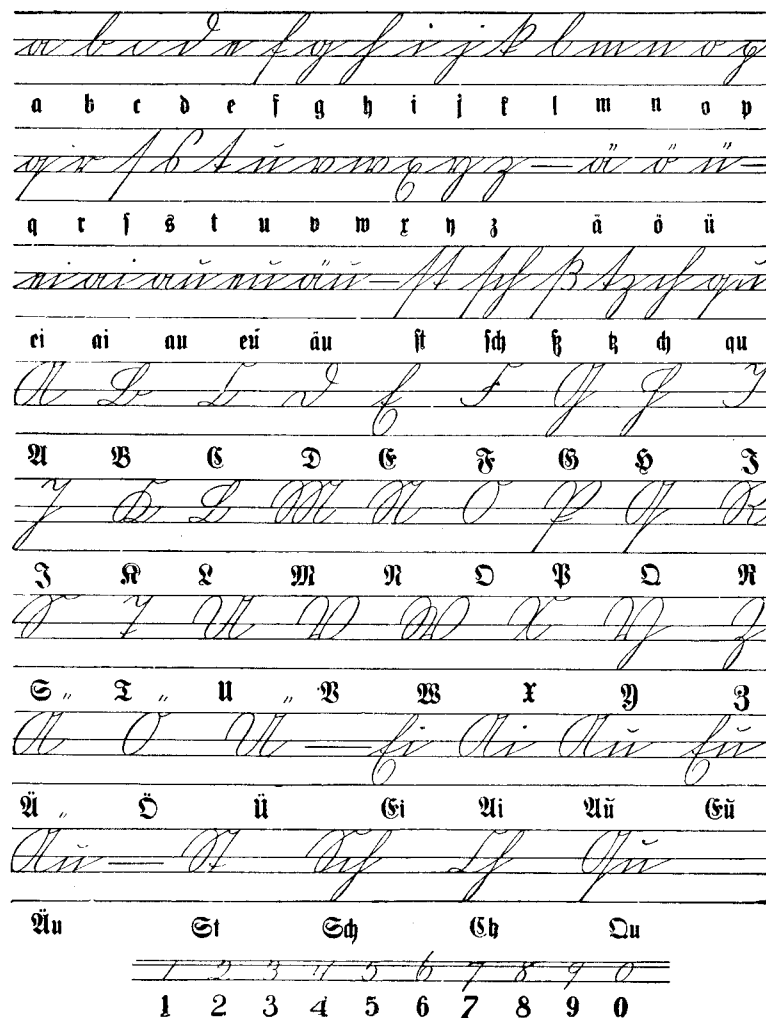 a b c d e f g h i j k l m n o p
a b c d e f g h i j k l m n o p
q r ſ s t u v w x y z — ä ö ü —
q r ſ s t u v w x y z ä ö ü
ei ai au eu äu — ſt ſch ß tz ch qu
ei ai au eŭ äu ſt ſch ß tz ch qu
A B C D E F G H I
A B C D E F G H I
J K L M N O P Q R
J K L M N O P Q R
S T U V W X Y Z
S T U V W X Y Z
Ä Ö Ü — Ei Ai Au Eu
Ä Ö Ü Ei Ai Aŭ Eŭ
Äu — St Sch Ch Qu
Äu St Sch Ch Qu
1 2 3 4 5 6 7 8 9 0
1 2 3 4 5 6 7 8 9 0